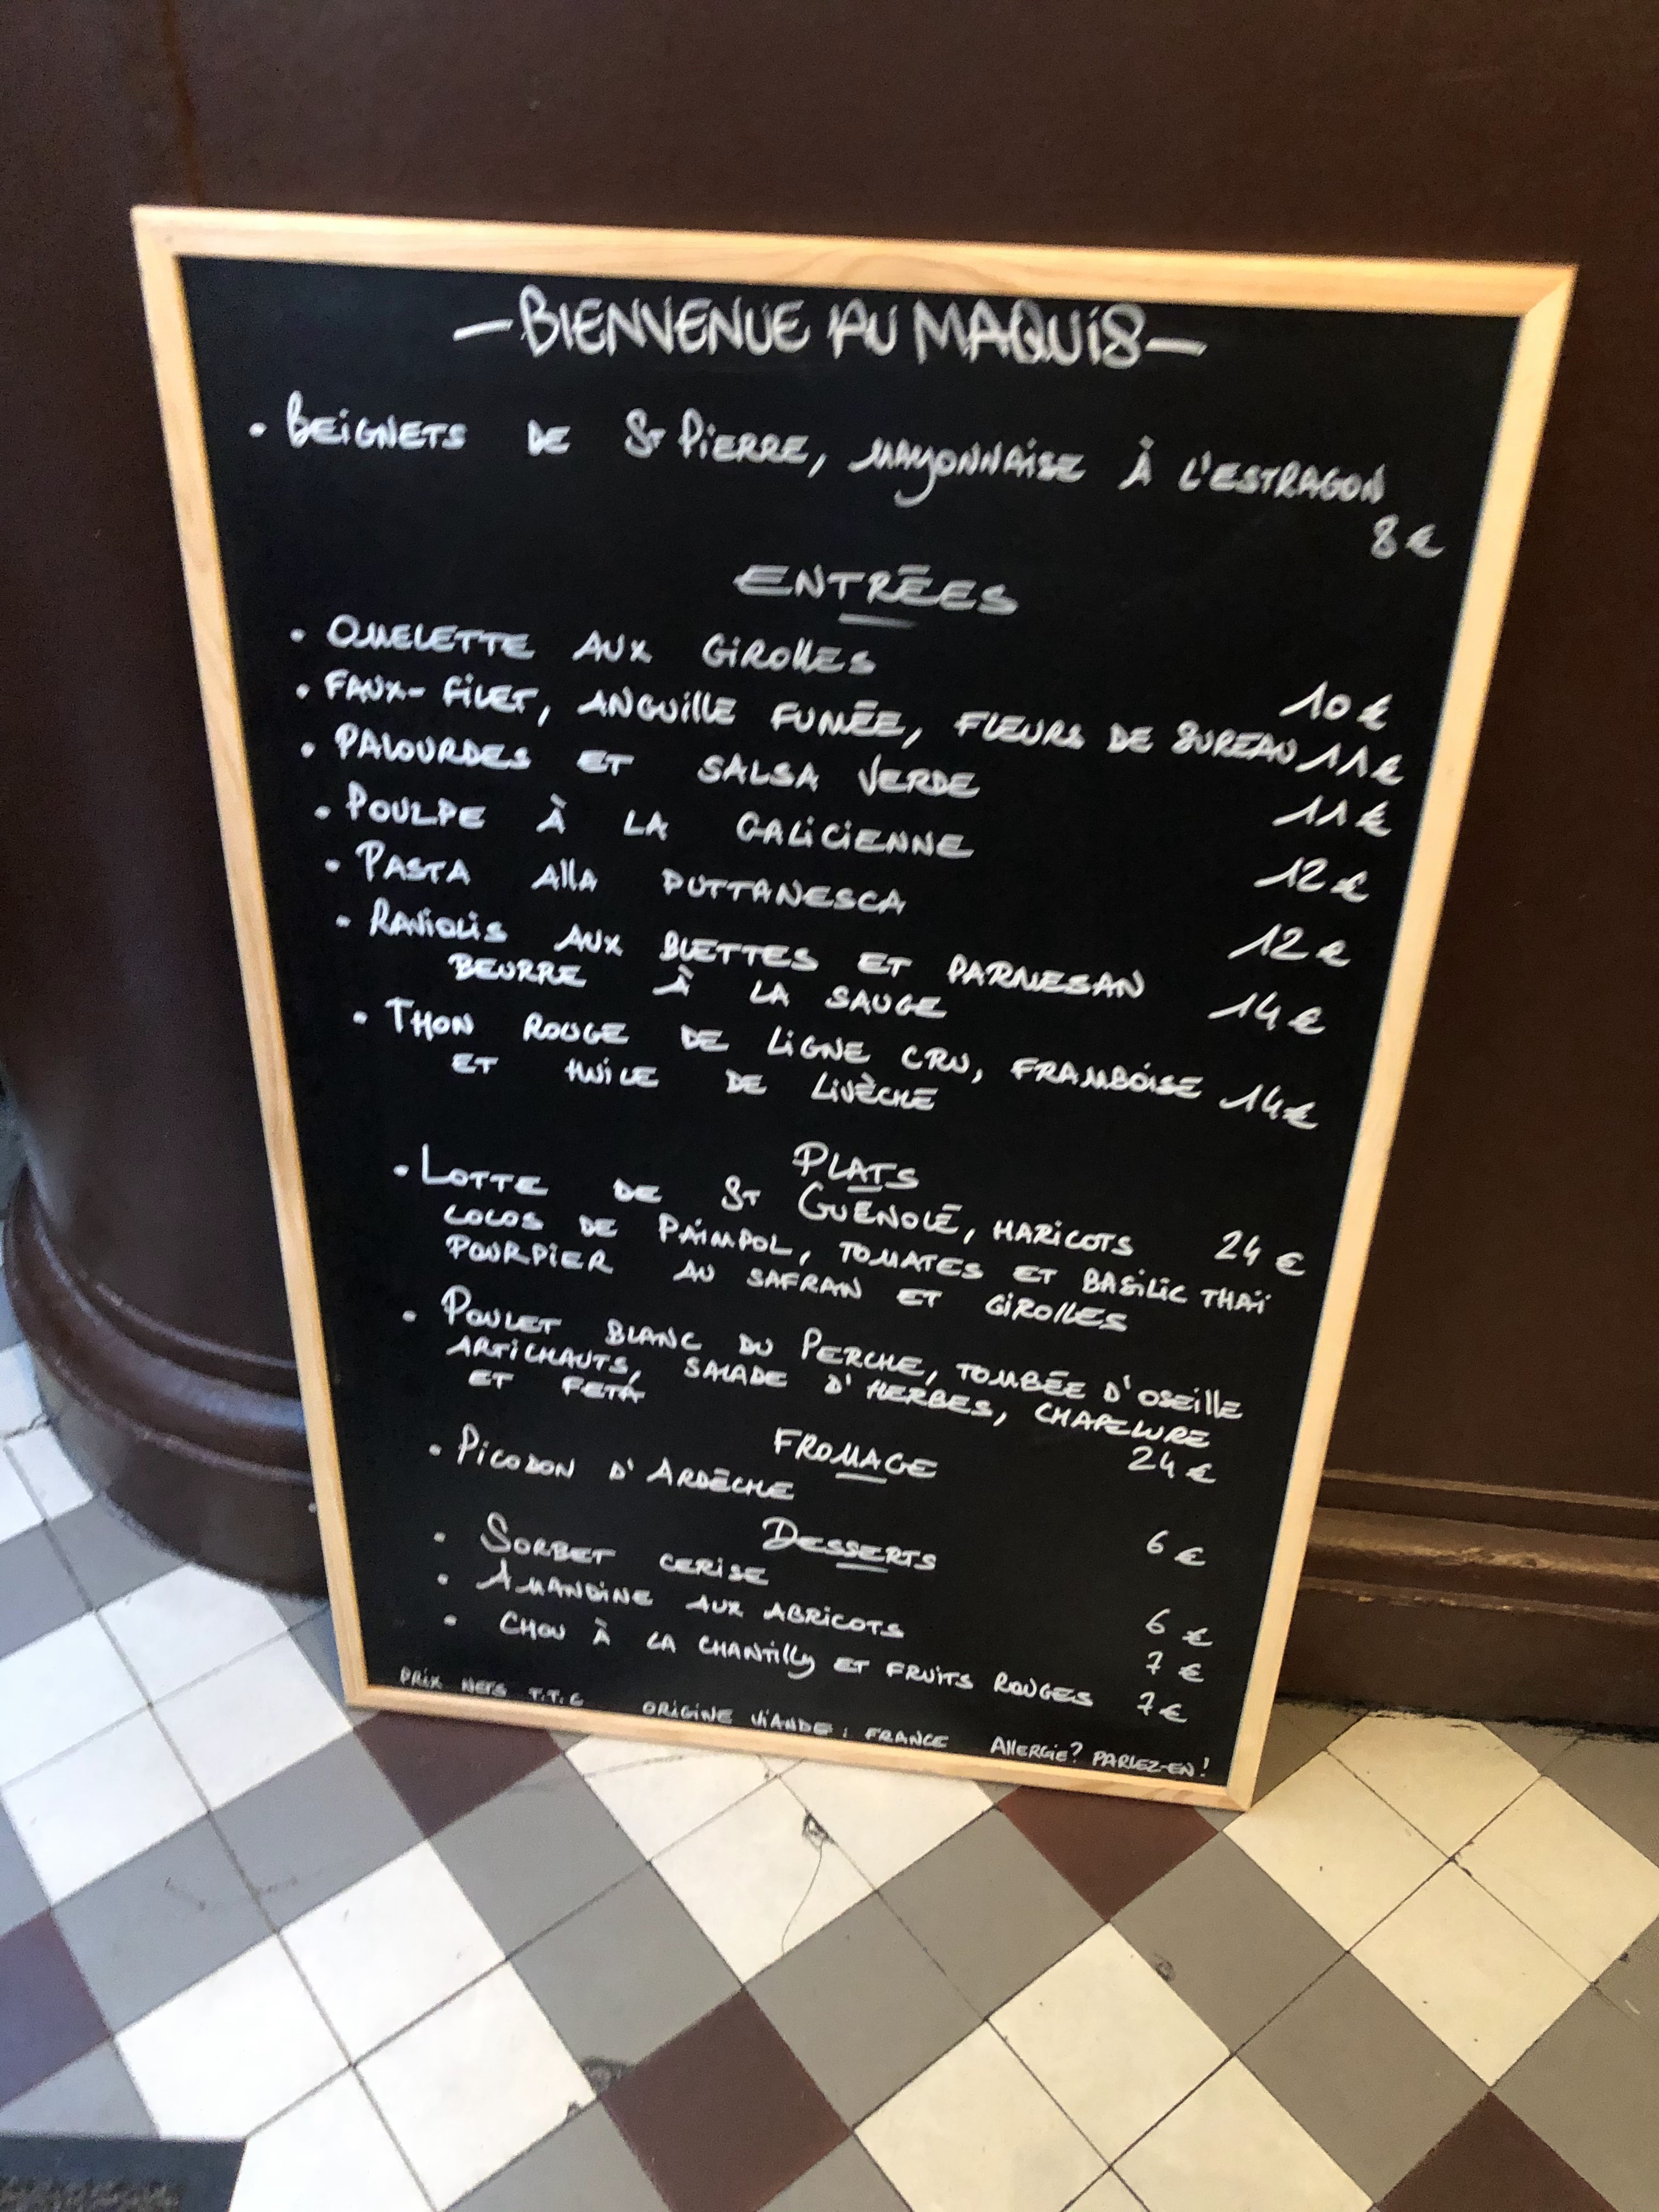 — BIENVENUE AU MAQUIS —
• BEIGNETS DE ST PIERRE, MAYONNAISE À L'ESTRAGON
8 €
ENTRÉES
• OMELETTE AUX GIROLLES 10 €
• FAUX-FILET, ANGUILLE FUMÉE, FLEURS DE SUREAU 11 €
• PALOURDES ET SALSA VERDE 11 €
• POULPE À LA GALICIENNE 12 €
• PASTA ALLA PUTTANESCA 12 €
• RAVIOLIS AUX BLETTES ET PARMESAN
BEURRE À LA SAUGE 14 €
• THON ROUGE DE LIGNE CRU, FRAMBOISE 14 €
ET HUILE DE LIVÈCHE
PLATS
• LOTTE DE ST GUÉNOLÉ, HARICOTS 24 €
COCOS DE PAIMPOL, TOMATES ET BASILIC THAÏ
POURPIER AU SAFRAN ET GIROLLES
• POULET BLANC DU PERCHE, TOMBÉE D'OSEILLE
ARTICHAUTS, SALADE D'HERBES, CHAPELURE
ET FETA 24 €
FROMAGE
• PICODON D'ARDÈCHE 6 €
DESSERTS
• SORBET CERISE 6 €
• AMANDINE AUX ABRICOTS 7 €
• CHOU À LA CHANTILLY ET FRUITS ROUGES 7 €
PRIX NETS T.T.C ORIGINE VIANDE : FRANCE ALLERGIE? PARLEZ-EN!